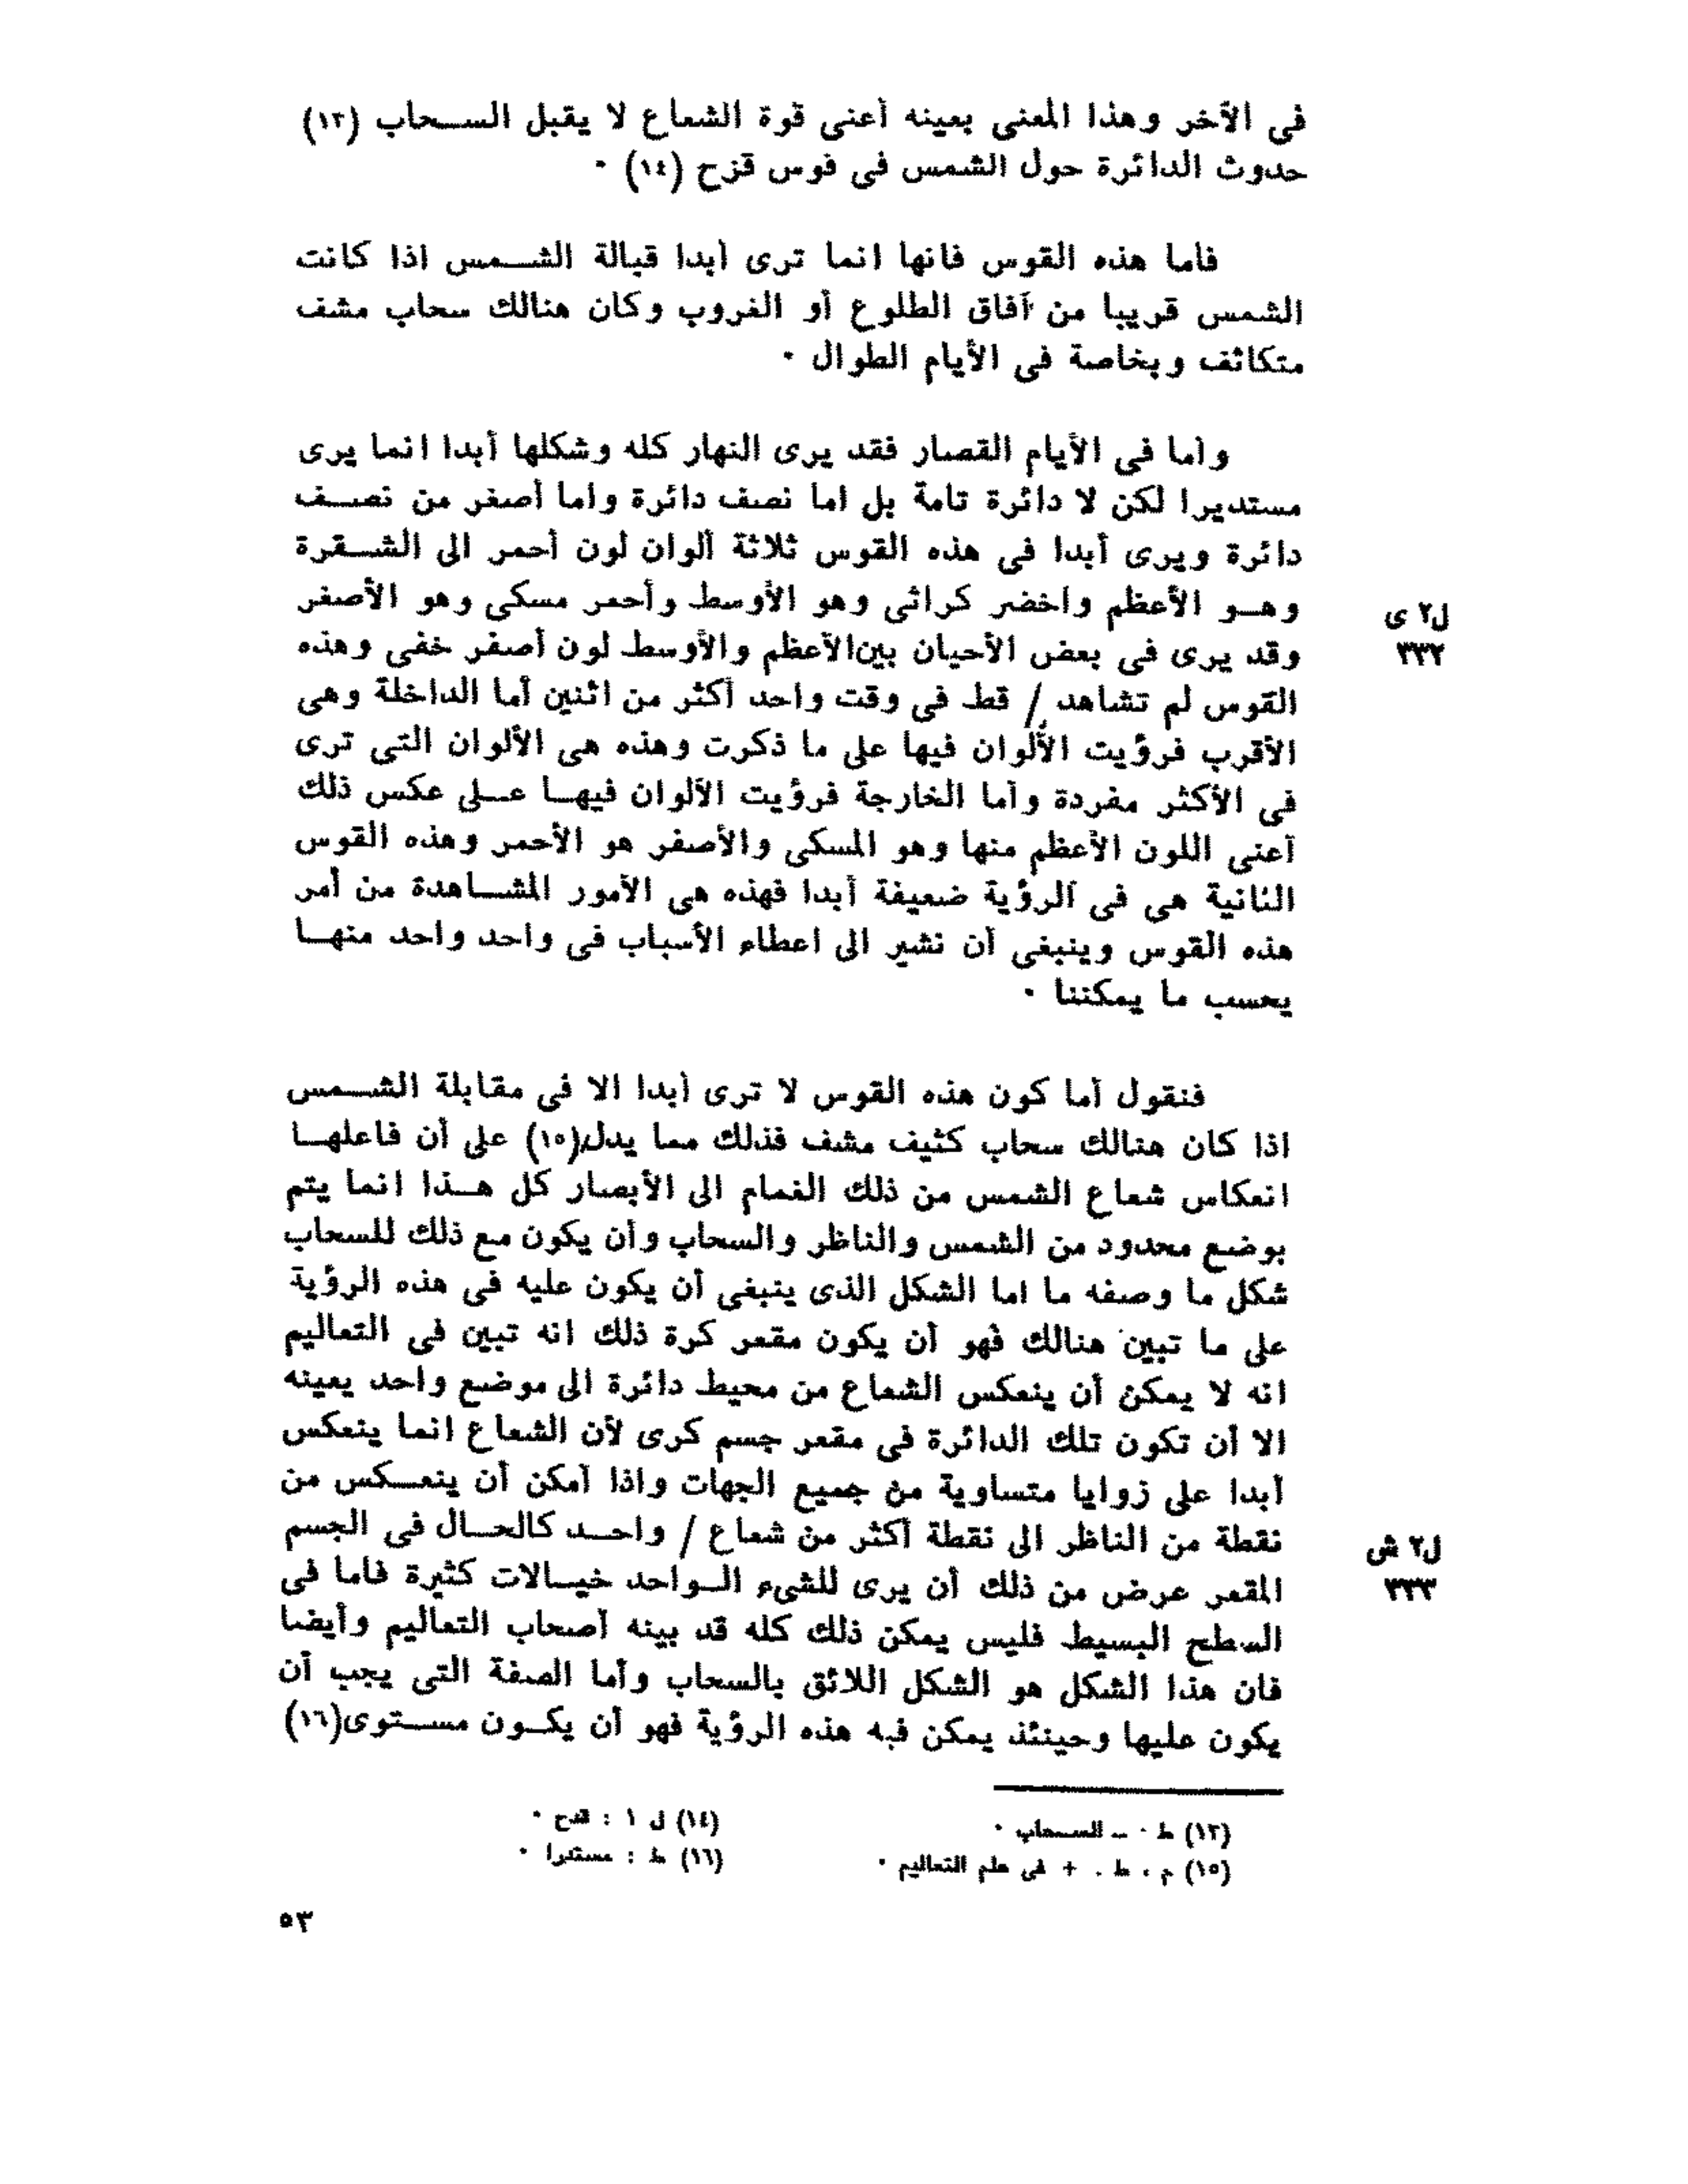 فى الآخر وهذا المعنى بعينه أعنى قوة الشعاع لا يقبل السحاب (١٣)
حدوث الدائرة حول الشمس فى فوس قزح (١٤) ٠
فاما هذه القوس فانها انما ترى أبدا قبالة الشمس اذا كانت
الشمس قريبا من آفاق الطلوع أو الغروب وكان هنالك سحاب مشف
متكاثف وبخاصة فى الأيام الطوال ٠
وأما فى الأيام القصار فقد يرى النهار كله وشكلها أبدا انما يرى
مستديرا لكن لا دائرة تامة بل اما نصف دائرة واما أصغر من نصف
دائرة ويرى أبدا فى هذه القوس ثلاثة ألوان لون أحمر الى الشقرة
وهو الأعظم واخضر كراثى وهو الأوسط وأحمر مسكى وهو الأصغر
ل٢ ى
وقد يرى فى بعض الأحيان بين الأعظم والأوسط لون أصفر خفى وهذه
٣٣٢
القوس لم تشاهد / قط فى وقت واحد أكثر من اثنين أما الداخلة وهى
الأقرب فرؤيت الألوان فيها على ما ذكرت وهذه هى الألوان التى ترى
فى الأكثر مفردة وأما الخارجة فرؤيت الألوان فيها على عكس ذلك
أعنى اللون الأعظم منها وهو المسكى والأصفر هو الأحمر وهذه القوس
الثانية هى فى الرؤية ضعيفة أبدا فهذه هى الأمور المشاهدة من أمر
هذه القوس وينبغى أن نشير الى اعطاء الأسباب فى واحد واحد منها
بحسب ما يمكننا ٠
فنقول أما كون هذه القوس لا ترى أبدا الا فى مقابلة الشمس
اذا كان هنالك سحاب كثيف مشف فذلك مما يدل(١٥) على أن فاعلها
انعكاس شعاع الشمس من ذلك الغمام الى الأبصار كل هذا انما يتم
بوضع محدود من الشمس والناظر والسحاب وأن يكون مع ذلك للسحاب
شكل ما وصفه ما اما الشكل الذى ينبغى أن يكون عليه فى هذه الرؤية
على ما تبين هنالك فهو أن يكون مقعر كرة ذلك انه تبين فى التعاليم
انه لا يمكن أن ينعكس الشعاع من محيط دائرة الى موضع واحد بعينه
الا أن تكون تلك الدائرة فى مقعر جسم كرى لأن الشعاع انما ينعكس
أبدا على زوايا متساوية من جميع الجهات واذا أمكن أن ينعكس من
نقطة من الناظر الى نقطة أكثر من شعاع / واحد كالحال فى الجسم
ل٢ ش
المقعر عرض من ذلك أن يرى للشىء الواحد خيالات كثيرة فاما فى
٣٣٣
السطح البسيط فليس يمكن ذلك كله قد بينه أصحاب التعاليم وأيضا
فان هذا الشكل هو الشكل اللائق بالسحاب وأما الصفة التى يجب أن
يكون عليها وحينئذ يمكن فيه هذه الرؤية فهو أن يكون مستوى(١٦)
(١٣) ط ٠ ــ السحاب ٠
(١٤) ل ١ : قدح ٠
(١٥) م ، ط ٠ + فى علم التعاليم ٠
(١٦) ط : مستدرا ٠
٥٣